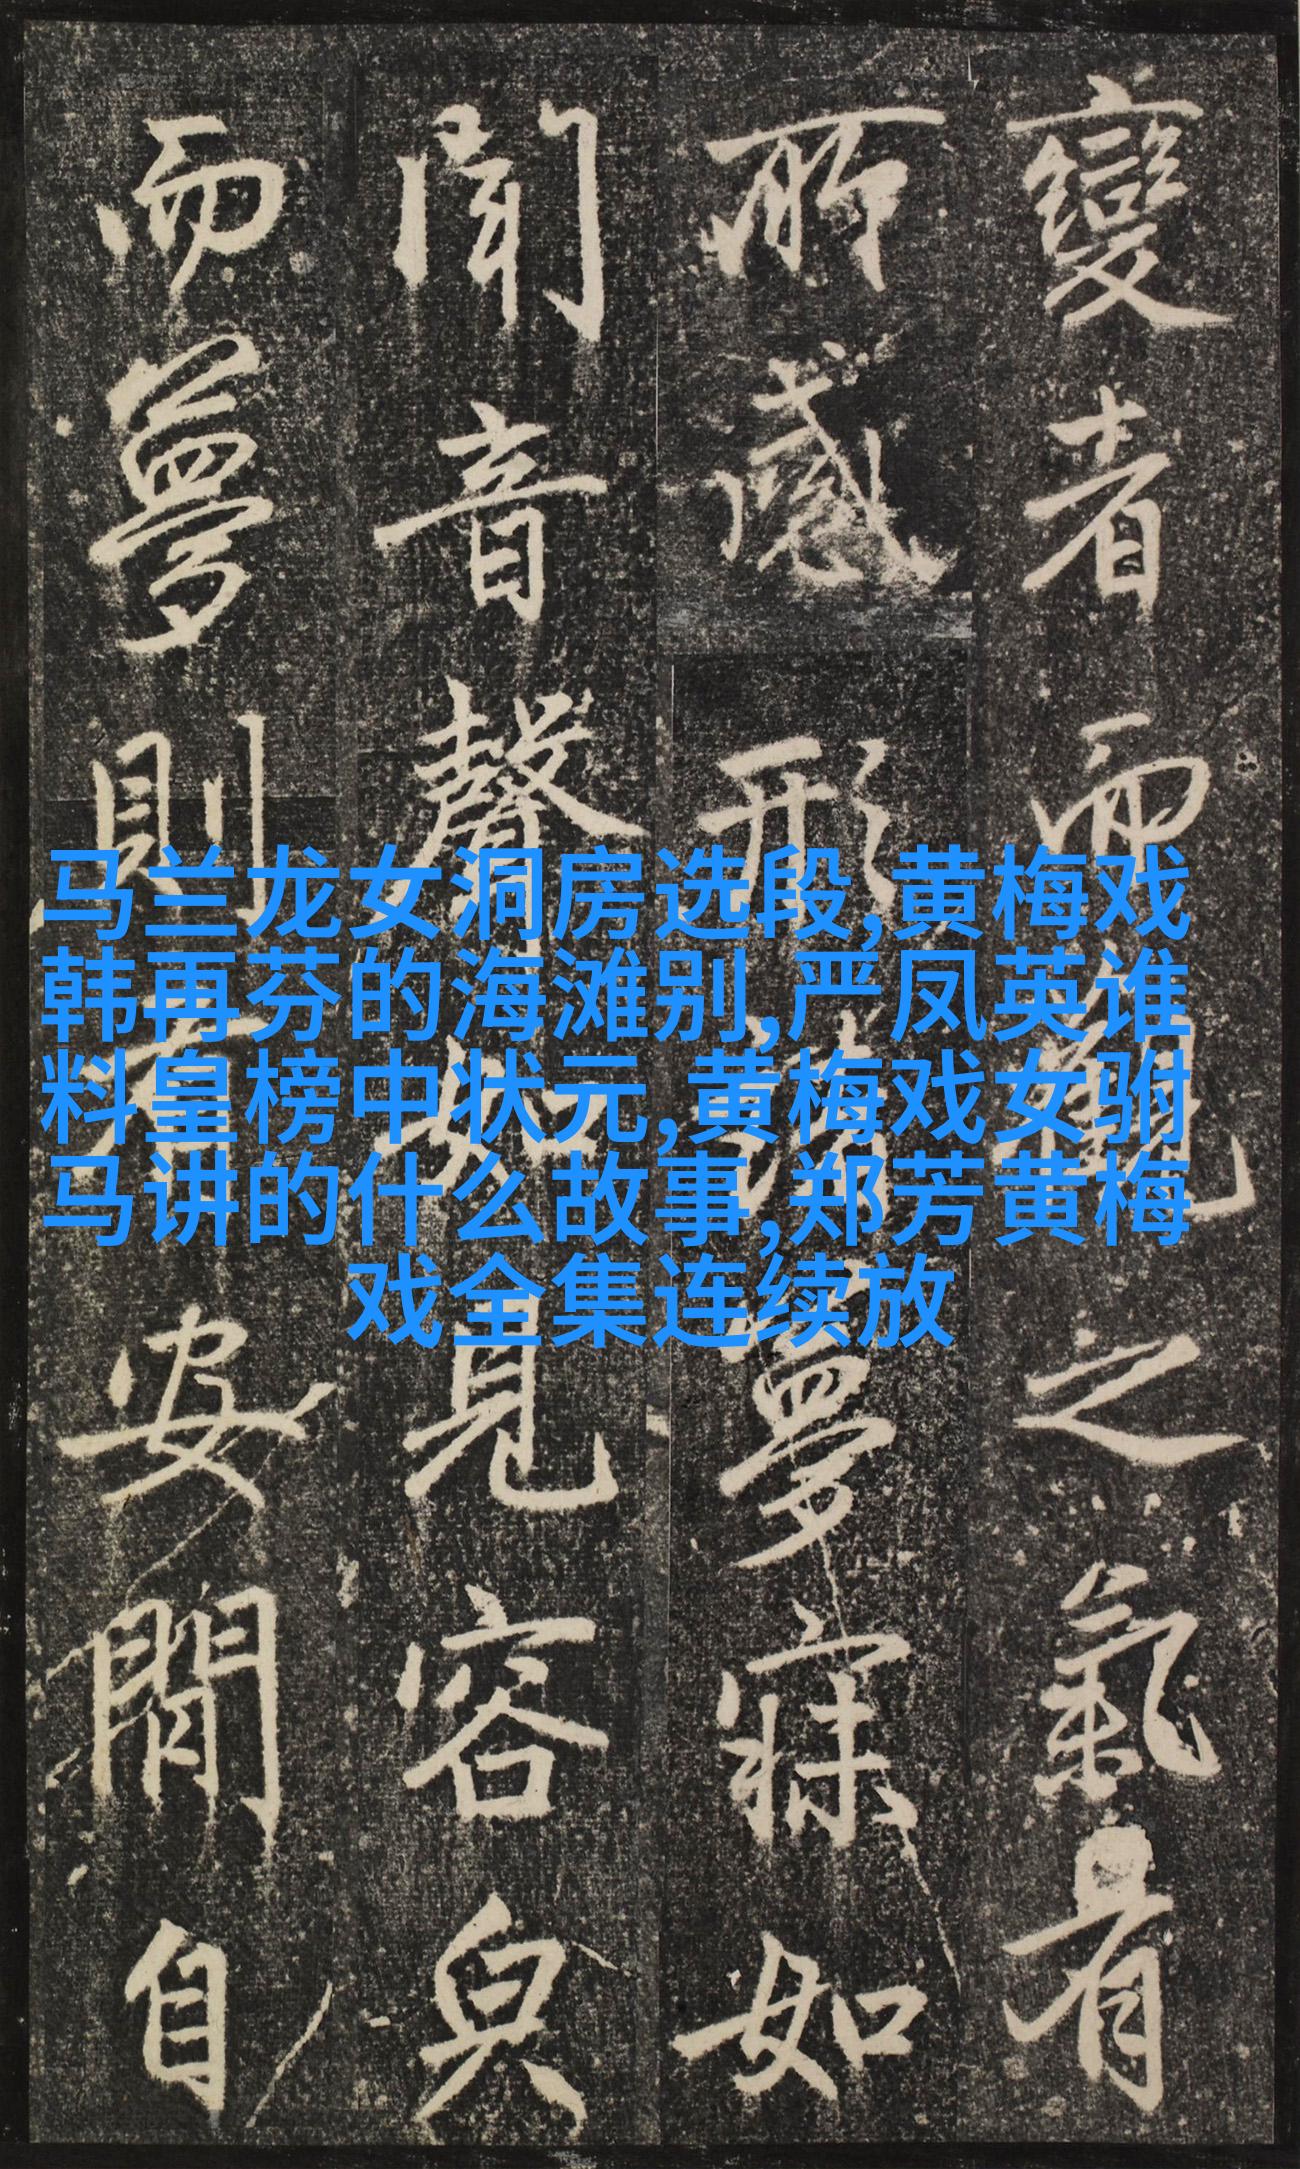 變者而觀之氣有
所感形夢寐如
聞音聲如見容皃
而夢則安閒自
马兰龙女洞房选段,黄梅戏
韩再芬的海滩别,严凤英谁
料皇榜中状元,黄梅戏女驸
马讲的什么故事,郑芳黄梅
戏全集连续放